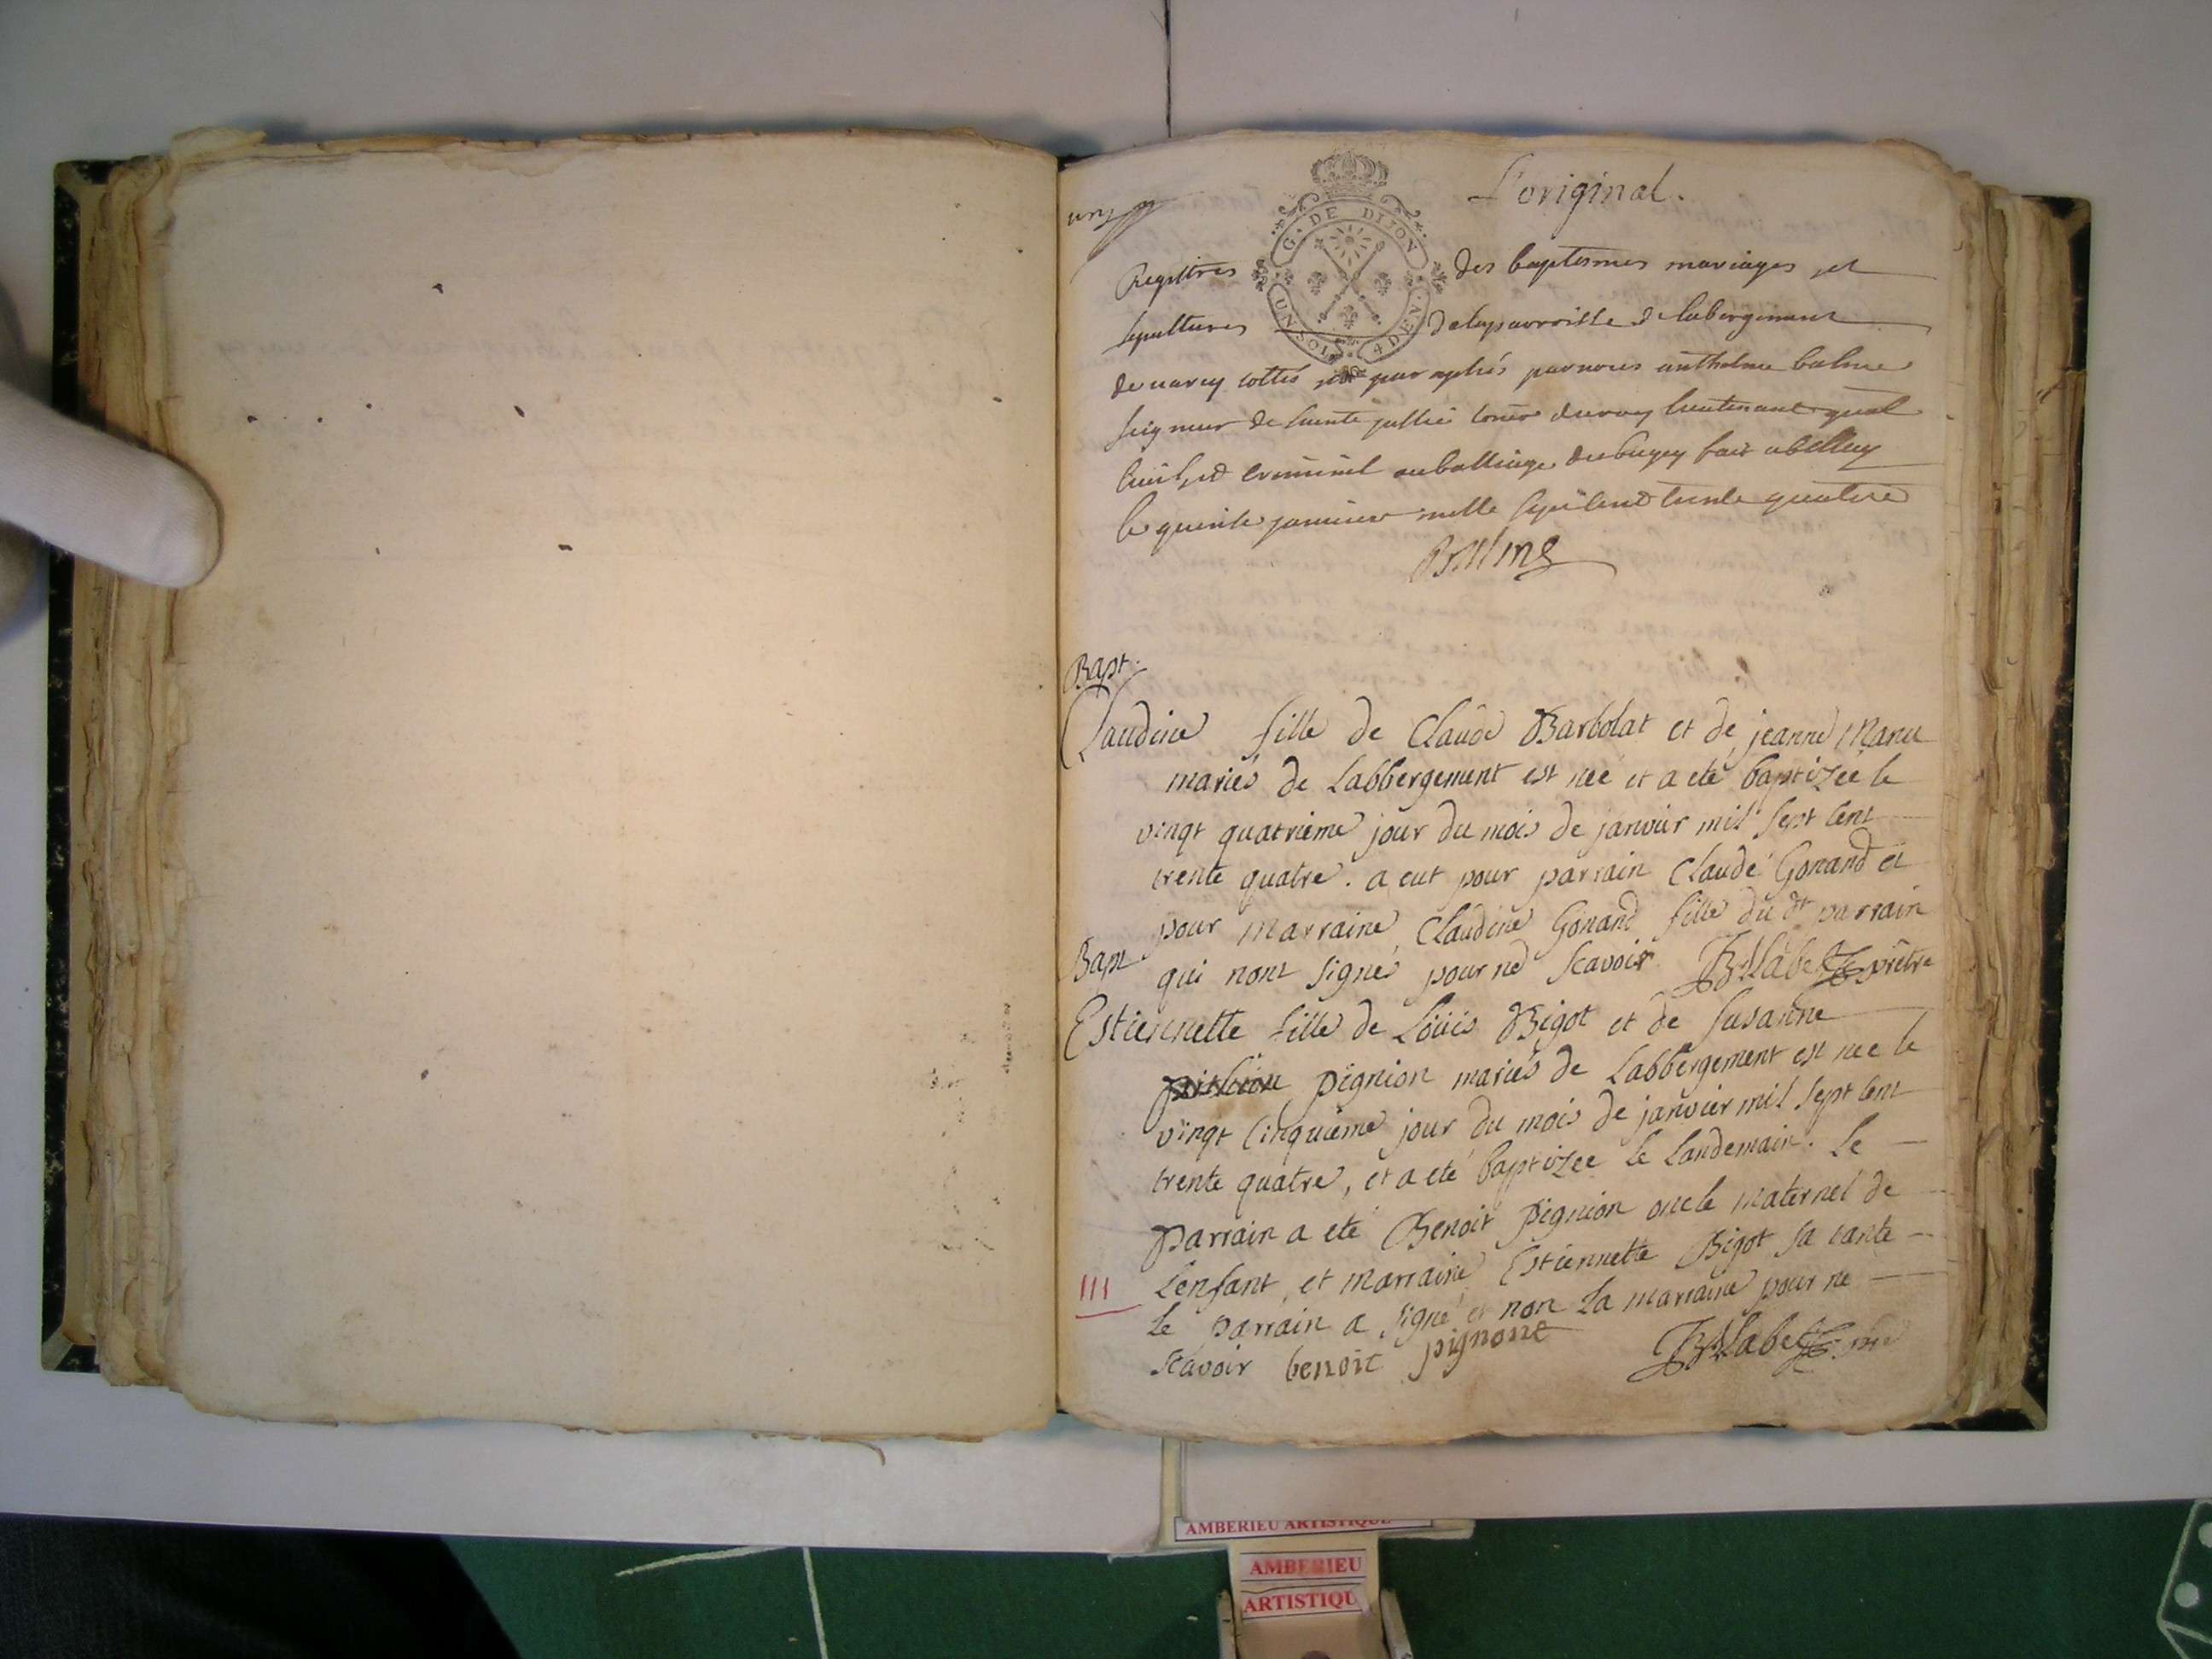 L'original.
G. DE DIJON
UN SOL 4 DEN.
Registres des baptesmes mariages et
sepultures de la parroisse de labergement
de varey cottés et paraphés par nous anthelme balme
seigneur de sainte jullie conser du roy lieutenant gnal
civil et criminel au balliage du bugey fait a belley
le quinze janvier mille sept cent trente quatre
Balme
Bapt.
Claudine fille de Claude Barbolat et de jeanne
mariés de Labbergement est née et a eté baptizée le
vingt quatrieme jour du mois de janvier mil sept cent
trente quatre. a eut pour parrain Claude Gonand et
pour marraine, Claudine Gonand fille du dt parrain
qui nont signés pour ne scavoir prêtre
Bapt
Estiennette fille de Loüis Bigot et de Susanne
pignion mariés de Labbergement est nee le
vingt cinquieme jour du mois de janvier mil sept cent
trente quatre, et a eté baptizee le landemain. Le
parrain a eté Benoit pignion oncle maternel de
Lenfant, et marraine Estiennette Bigot sa tante
Le parrain a signé et non La marraine pour ne
scavoir benoit pignone
III
AMBERIEU ARTISTIQUE
AMBERIEU
ARTISTIQU